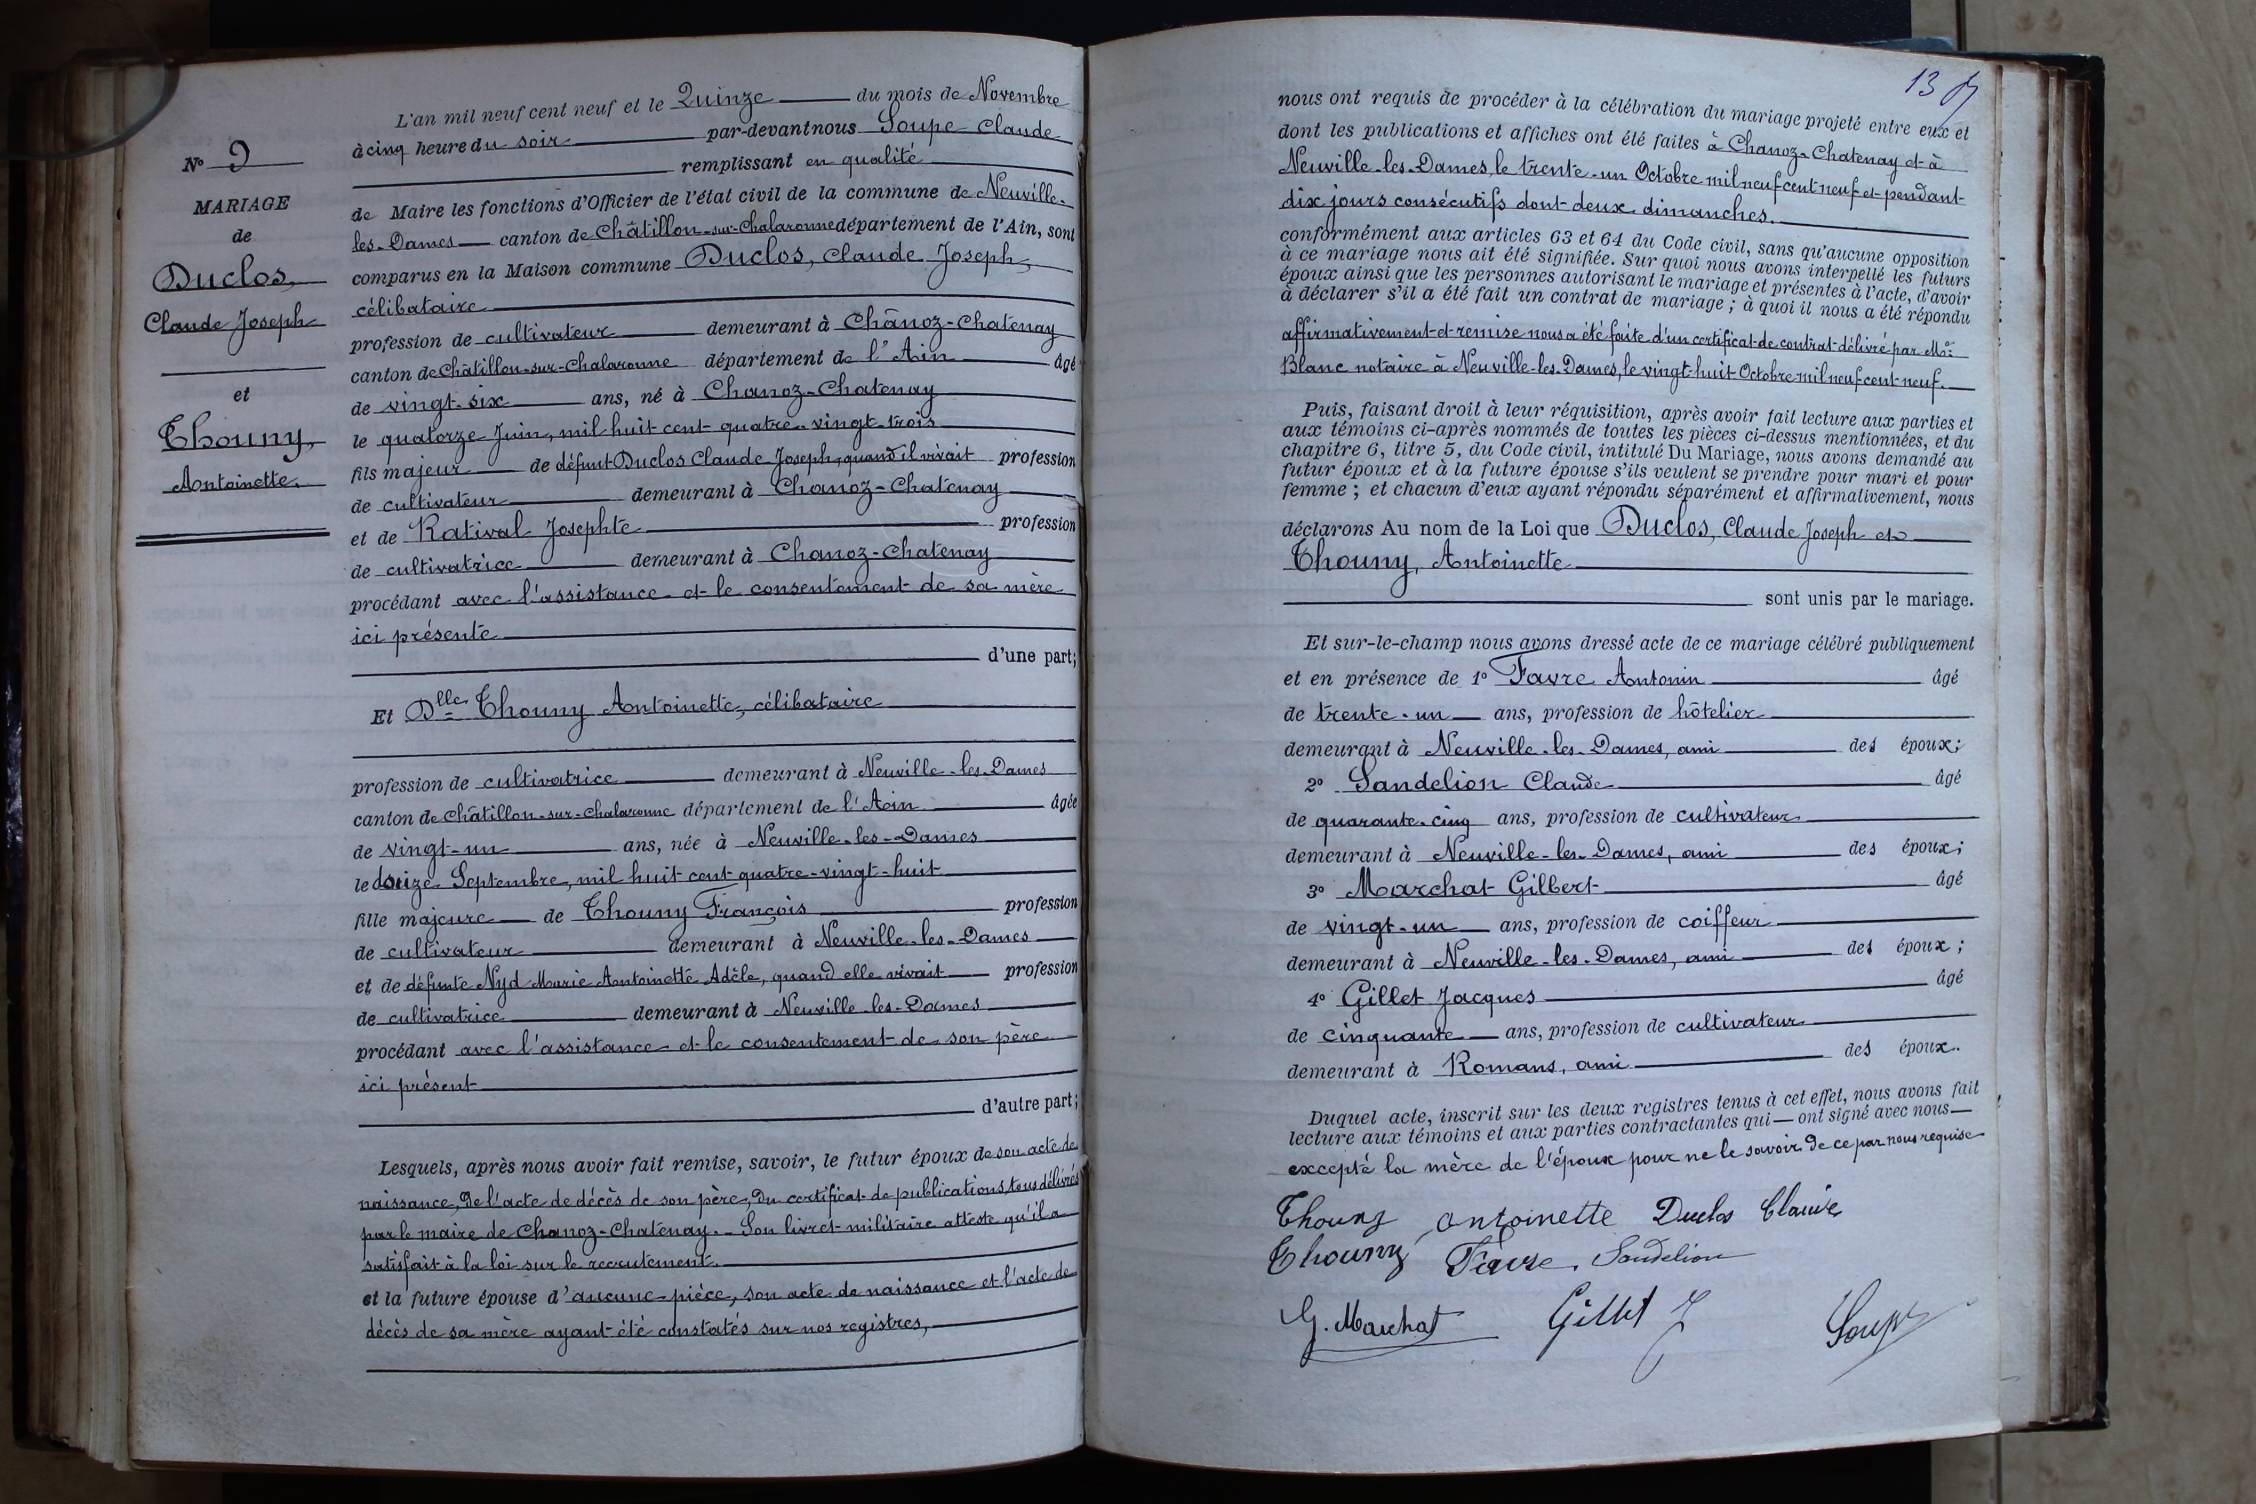 N° 9
MARIAGE
de
Duclos,
Claude Joseph
et
Thouny,
Antoinette.
L'an mil neuf cent neuf et le Quinze du mois de Novembre
à cinq heure du soir par-devant nous Soupe Claude
remplissant en qualité
de Maire les fonctions d'Officier de l'état civil de la commune de Neuville-
les-Dames canton de Châtillon-sur-Chalaronne département de l'Ain, sont
comparus en la Maison commune Duclos, Claude Joseph,
célibataire
profession de cultivateur demeurant à Chânoz-Chatenay
canton de Châtillon-sur-Chalaronne département de l'Ain âgé
de vingt-six ans, né à Chanoz-Chatenay
le quatorze Juin, mil huit cent quatre-vingt-trois
fils majeur de défunt Duclos Claude Joseph, quand il vivait profession
de cultivateur demeurant à Chanoz-Chatenay
et de Rativat Josephte profession
de cultivatrice demeurant à Chanoz-Chatenay
procédant avec l'assistance et le consentement de sa mère
ici présente
d'une part;
Et Dlle Thouny Antoinette, célibataire
profession de cultivatrice demeurant à Neuville-les-Dames
canton de Châtillon-sur-Chalaronne département de l'Ain âgée
de vingt-un ans, née à Neuville-les-Dames
le Septembre, mil huit cent quatre-vingt-huit
fille majeure de Thouny François profession
de cultivateur demeurant à Neuville-les-Dames
et de défunte Nyd Marie Antoinette Adèle, quand elle vivait profession
de cultivatrice demeurant à Neuville-les-Dames
procédant avec l'assistance et le consentement de son père
ici présent
d'autre part;
Lesquels, après nous avoir fait remise, savoir, le futur époux de son acte de
naissance, de l'acte de décès de son père, du certificat de publications, tous délivrés
par le maire de Chanoz-Chatenay. Son livret militaire atteste qu'il a
satisfait à la loi sur le recrutement.
et la future épouse d'aucune pièce, son acte de naissance et l'acte de
décès de sa mère ayant été constatés sur nos registres,
13
nous ont requis de procéder à la célébration du mariage projeté entre eux et
dont les publications et affiches ont été faites à Chanoz-Chatenay et à
Neuville-les-Dames, le trente-un Octobre mil neuf cent neuf et pendant
dix jours consécutifs dont deux dimanches.
conformément aux articles 63 et 64 du Code civil, sans qu'aucune opposition
à ce mariage nous ait été signifiée. Sur quoi nous avons interpellé les futurs
époux ainsi que les personnes autorisant le mariage et présentes à l'acte, d'avoir
à déclarer s'il a été fait un contrat de mariage ; à quoi il nous a été répondu
affirmativement et remise nous a été faite d'un certificat de contrat délivré par Me
Blanc notaire à Neuville-les-Dames, le vingt-huit Octobre mil neuf cent neuf.
Puis, faisant droit à leur réquisition, après avoir fait lecture aux parties et
aux témoins ci-après nommés de toutes les pièces ci-dessus mentionnées, et du
chapitre 6, titre 5, du Code civil, intitulé Du Mariage, nous avons demandé au
futur époux et à la future épouse s'ils veulent se prendre pour mari et pour
femme ; et chacun d'eux ayant répondu séparément et affirmativement, nous
déclarons Au nom de la Loi que Duclos, Claude Joseph et
Thouny, Antoinette
sont unis par le mariage.
Et sur-le-champ nous avons dressé acte de ce mariage célébré publiquement
et en présence de 1° Favre Antonin âgé
de trente-un ans, profession de hôtelier
demeurant à Neuville-les-Dames, ami des époux;
2° Sandelion Claude âgé
de quarante-cinq ans, profession de cultivateur
demeurant à Neuville-les-Dames, ami des époux;
3° Marchat Gilbert âgé
de vingt-un ans, profession de coiffeur
demeurant à Neuville-les-Dames, ami des époux ;
4° Gillet Jacques âgé
de cinquante ans, profession de cultivateur
demeurant à Romans, ami des époux.
Duquel acte, inscrit sur les deux registres tenus à cet effet, nous avons fait
lecture aux témoins et aux parties contractantes qui ont signé avec nous
excepté la mère de l'époux pour ne le savoir de ce par nous requise
Thouny Antoinette Duclos Claude
Thouny Favre. Sandelion
G. Marchat Gillet J Soupe